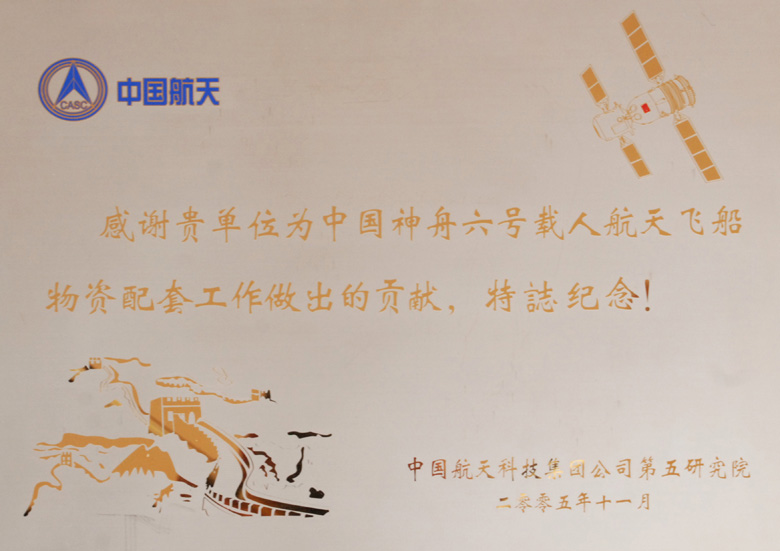 CASC 中国航天
感谢贵单位为中国神舟六号载人航天飞船
物资配套工作做出的贡献，特誌纪念！
中国航天科技集团公司第五研究院
二零零五年十一月